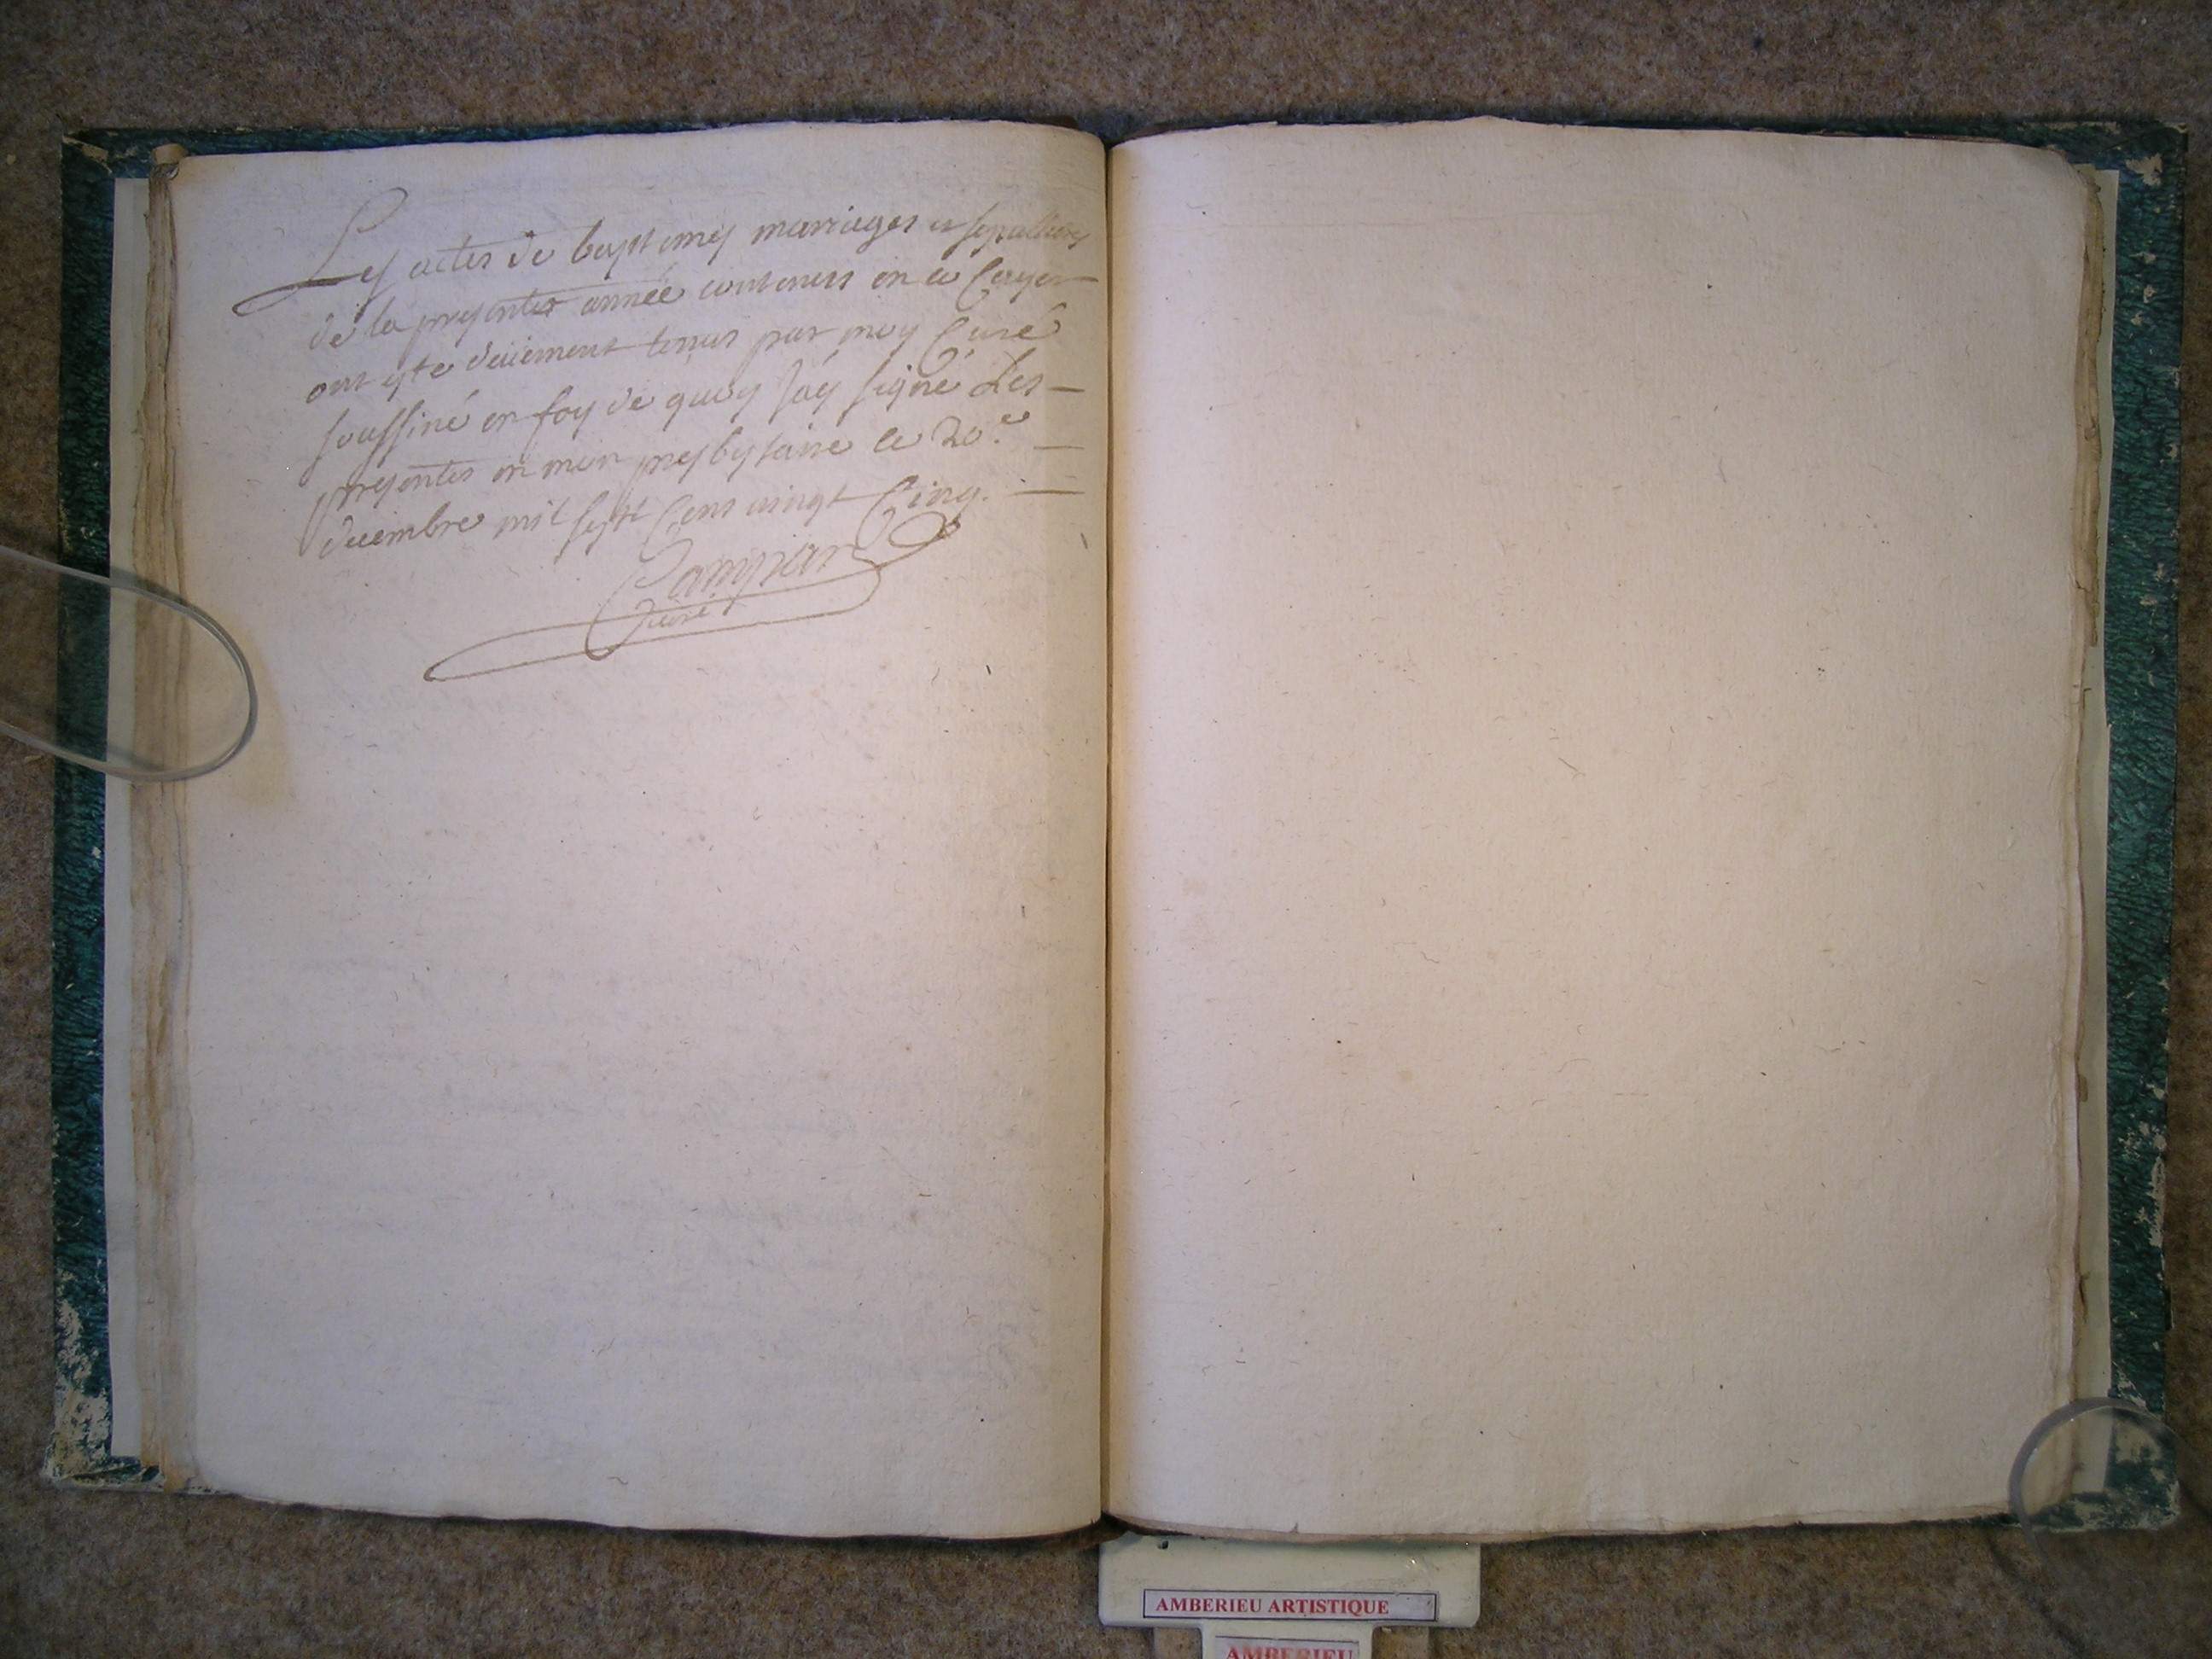 Les actes de baptemes mariages et sepultures
de la presente année contenus en ce Cayer
ont esté deüement tenus par moy Curé
soussiné en foy de quoy J'ay signé Les
presentes en mon presbytaire le 20.e
decembre mil sept Cens vingt Cinq.
Campian
Curé
AMBERIEU ARTISTIQUE
AMBERIEU